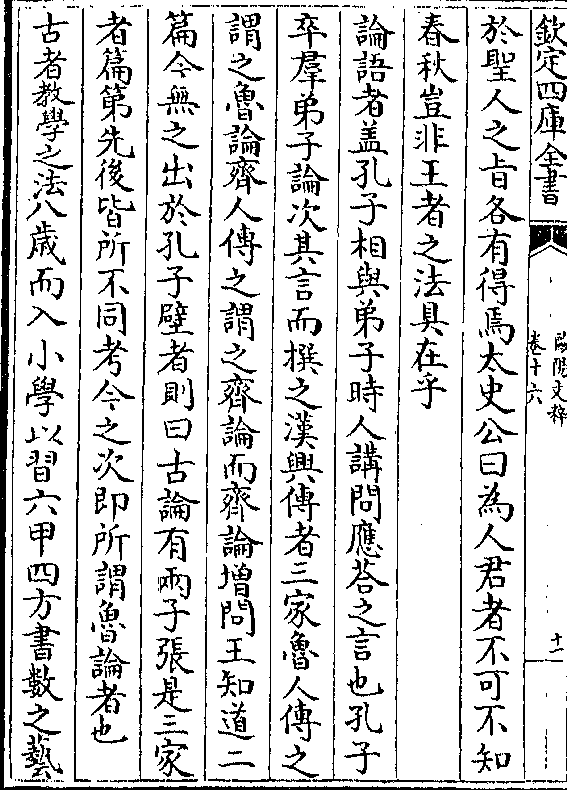 欽定四庫全書
歐陽文粹
卷十六
十一
於聖人之旨各有得焉太史公曰為人君者不可不知
春秋豈非王者之法具在乎
論語者盖孔子相與弟子時人講問應荅之言也孔子
卒羣弟子論次其言而撰之漢興傳者三家魯人傳之
謂之魯論齊人傳之謂之齊論而齊論增問王知道二
篇今無之出於孔子壁者則曰古論有兩子張是三家
者篇第先後皆所不同考今之次即所謂魯論者也
古者教學之法八歲而入小學以習六甲四方書數之藝